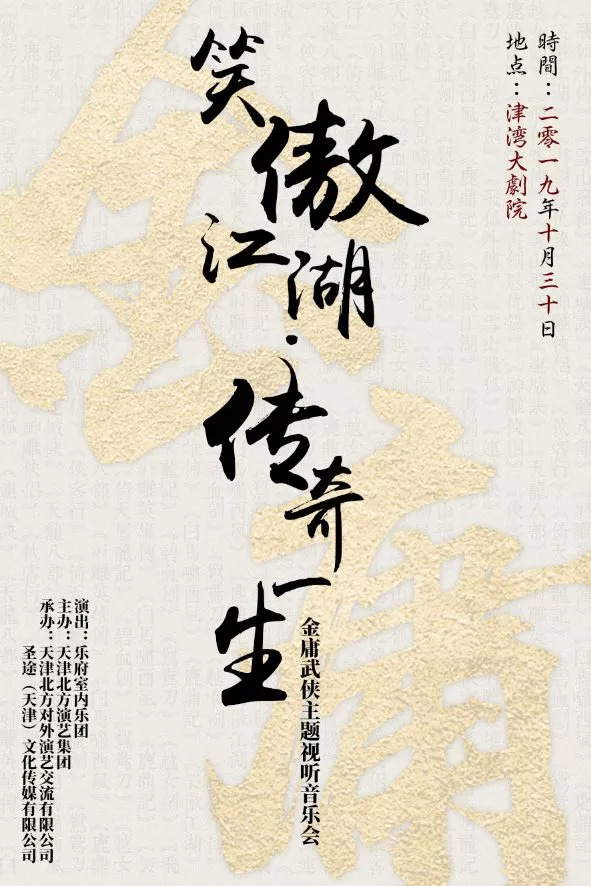 時間：二零一九年十月三十日
地点：津湾大劇院
笑傲江湖·传奇一生
金庸武侠主题视听音乐会
演出：乐府室内乐团
主办：天津北方演艺集团
承办：天津北方对外演艺交流有限公司
圣途（天津）文化传媒有限公司
金庸